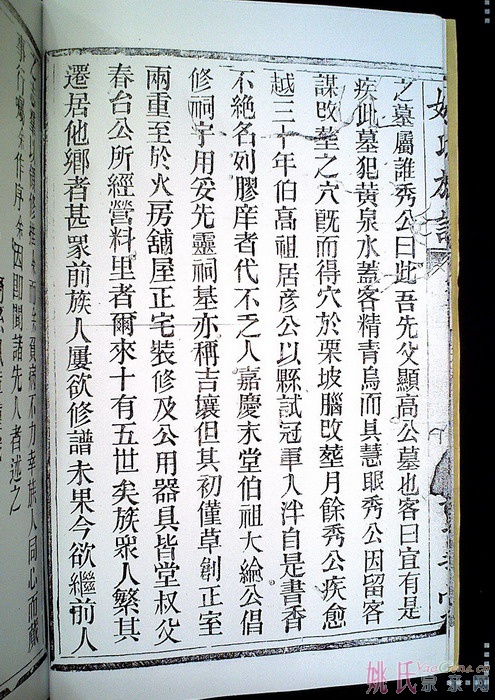 姚氏族譜
之墓屬誰秀公曰此吾先父顯高公墓也客曰宜有是
疾此墓犯黃泉水蓋客精青烏而具慧眼秀公因留客
謀改塟之穴旣而得穴於栗坡腦改塟月餘秀公疾愈
越三十年伯高祖居彥公以縣試冠軍入泮自是書香
不絶名列膠庠者代不乏人嘉慶末堂伯祖大綸公倡
修祠宇用妥先靈祠基亦稱吉壤但其初僅草創正室
兩重至於火房舖屋正宅裝修及公用器具皆堂叔父
春台公所經營料里者爾來十有五世矣族衆人繁其
遷居他鄉者甚眾前族人屢欲修譜未果今欲繼前人
之志
余而余貧病不力幸族人同心而
事行
余作序余因卽聞諸先人者述之
姚氏宗親网
YaoGens.cn